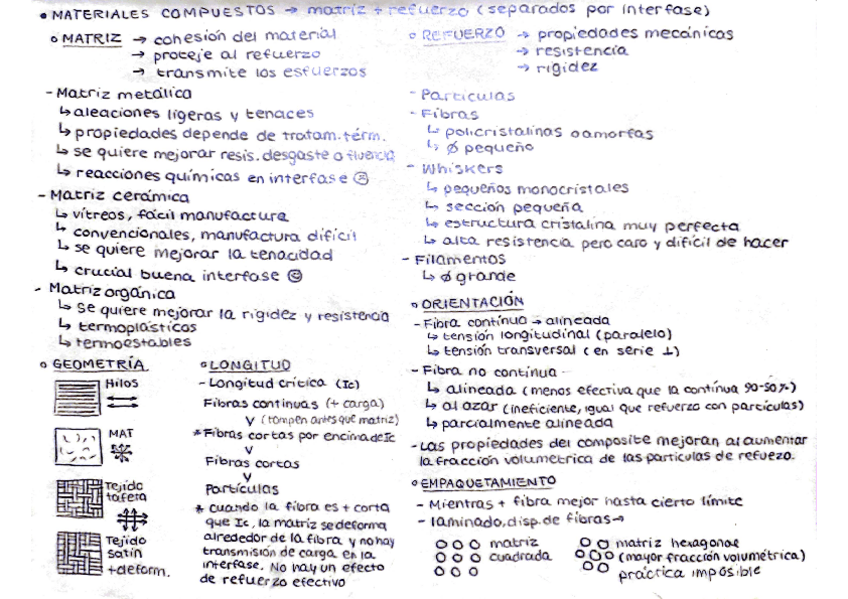 • MATERIALES COMPUESTOS → matriz + refuerzo (separados por interfase)
o MATRIZ → cohesión del material
→ proteje al refuerzo
→ transmite los esfuerzos
- Matriz metálica
↳ aleaciones ligeras y tenaces
↳ propiedades depende de tratam. térm.
↳ se quiere mejorar resis. desgaste o fluencia
↳ reacciones químicas en interfase ☹
- Matriz cerámica
↳ vítreos, fácil manufactura
↳ convencionales, manufactura difícil
↳ se quiere mejorar la tenacidad
↳ crucial buena interfase ☺
- Matriz orgánica
↳ se quiere mejorar la rigidez y resistencia
↳ termoplásticos
↳ termoestables
o GEOMETRÍA
Hilos
MAT
Tejido
tafera
Tejido
satín
+ deform.
o LONGITUD
- Longitud crítica (lc)
Fibras continuas (+ carga)
v (rompen antes que matriz)
* Fibras cortas por encima de lc
v
Fibras cortas
v
Partículas
* cuando la fibra es + corta
que lc, la matriz se deforma
alrededor de la fibra y no hay
transmisión de carga en la
interfase. No hay un efecto
de refuerzo efectivo
o REFUERZO → propiedades mecánicas
→ resistencia
→ rigidez
- Partículas
- Fibras
↳ policristalinas o amorfas
↳ ø pequeño
- Whiskers
↳ pequeños monocristales
↳ sección pequeña
↳ estructura cristalina muy perfecta
↳ alta resistencia pero caro y difícil de hacer
- Filamentos
↳ ø grande
o ORIENTACIÓN
- Fibra contínua → alineada
↳ tensión longitudinal (paralelo)
↳ tensión transversal (en serie ⊥)
- Fibra no contínua
↳ alineada (menos efectiva que la contínua 90-50%)
↳ al azar (ineficiente, igual que refuerzo con partículas)
↳ parcialmente alineada
- Las propiedades del composite mejoran al aumentar
la fracción volumetrica de las partículas de refuezo.
o EMPAQUETAMIENTO
- Mientras + fibra mejor hasta cierto límite
- laminado, disp. de fibras →
matriz
cuadrada
matriz hexagonal
(mayor fracción volumétrica)
práctica imposible